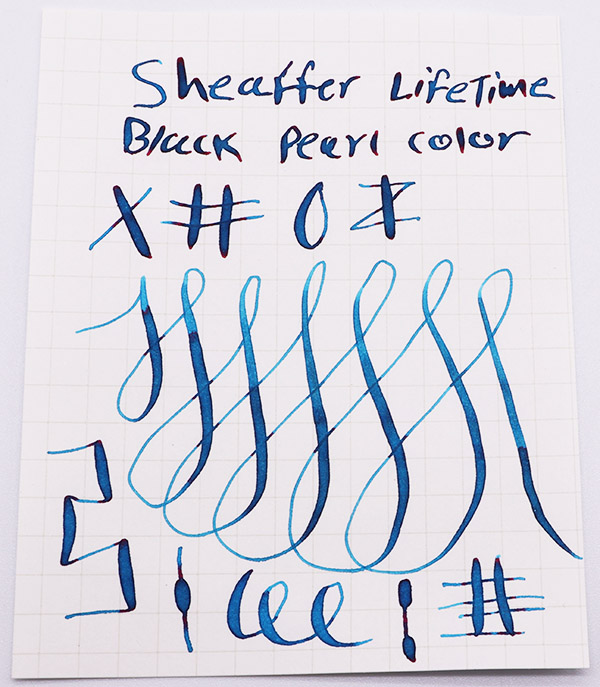 Sheaffer LifeTime
Black Pearl color
X # 0